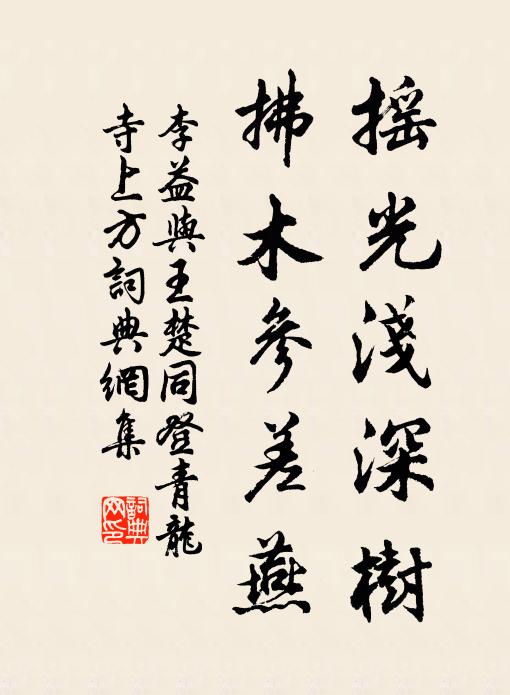 搖光淺深樹
拂木參差燕
李益與王楚同登青龍
寺上方詞典網集
詞典
网印